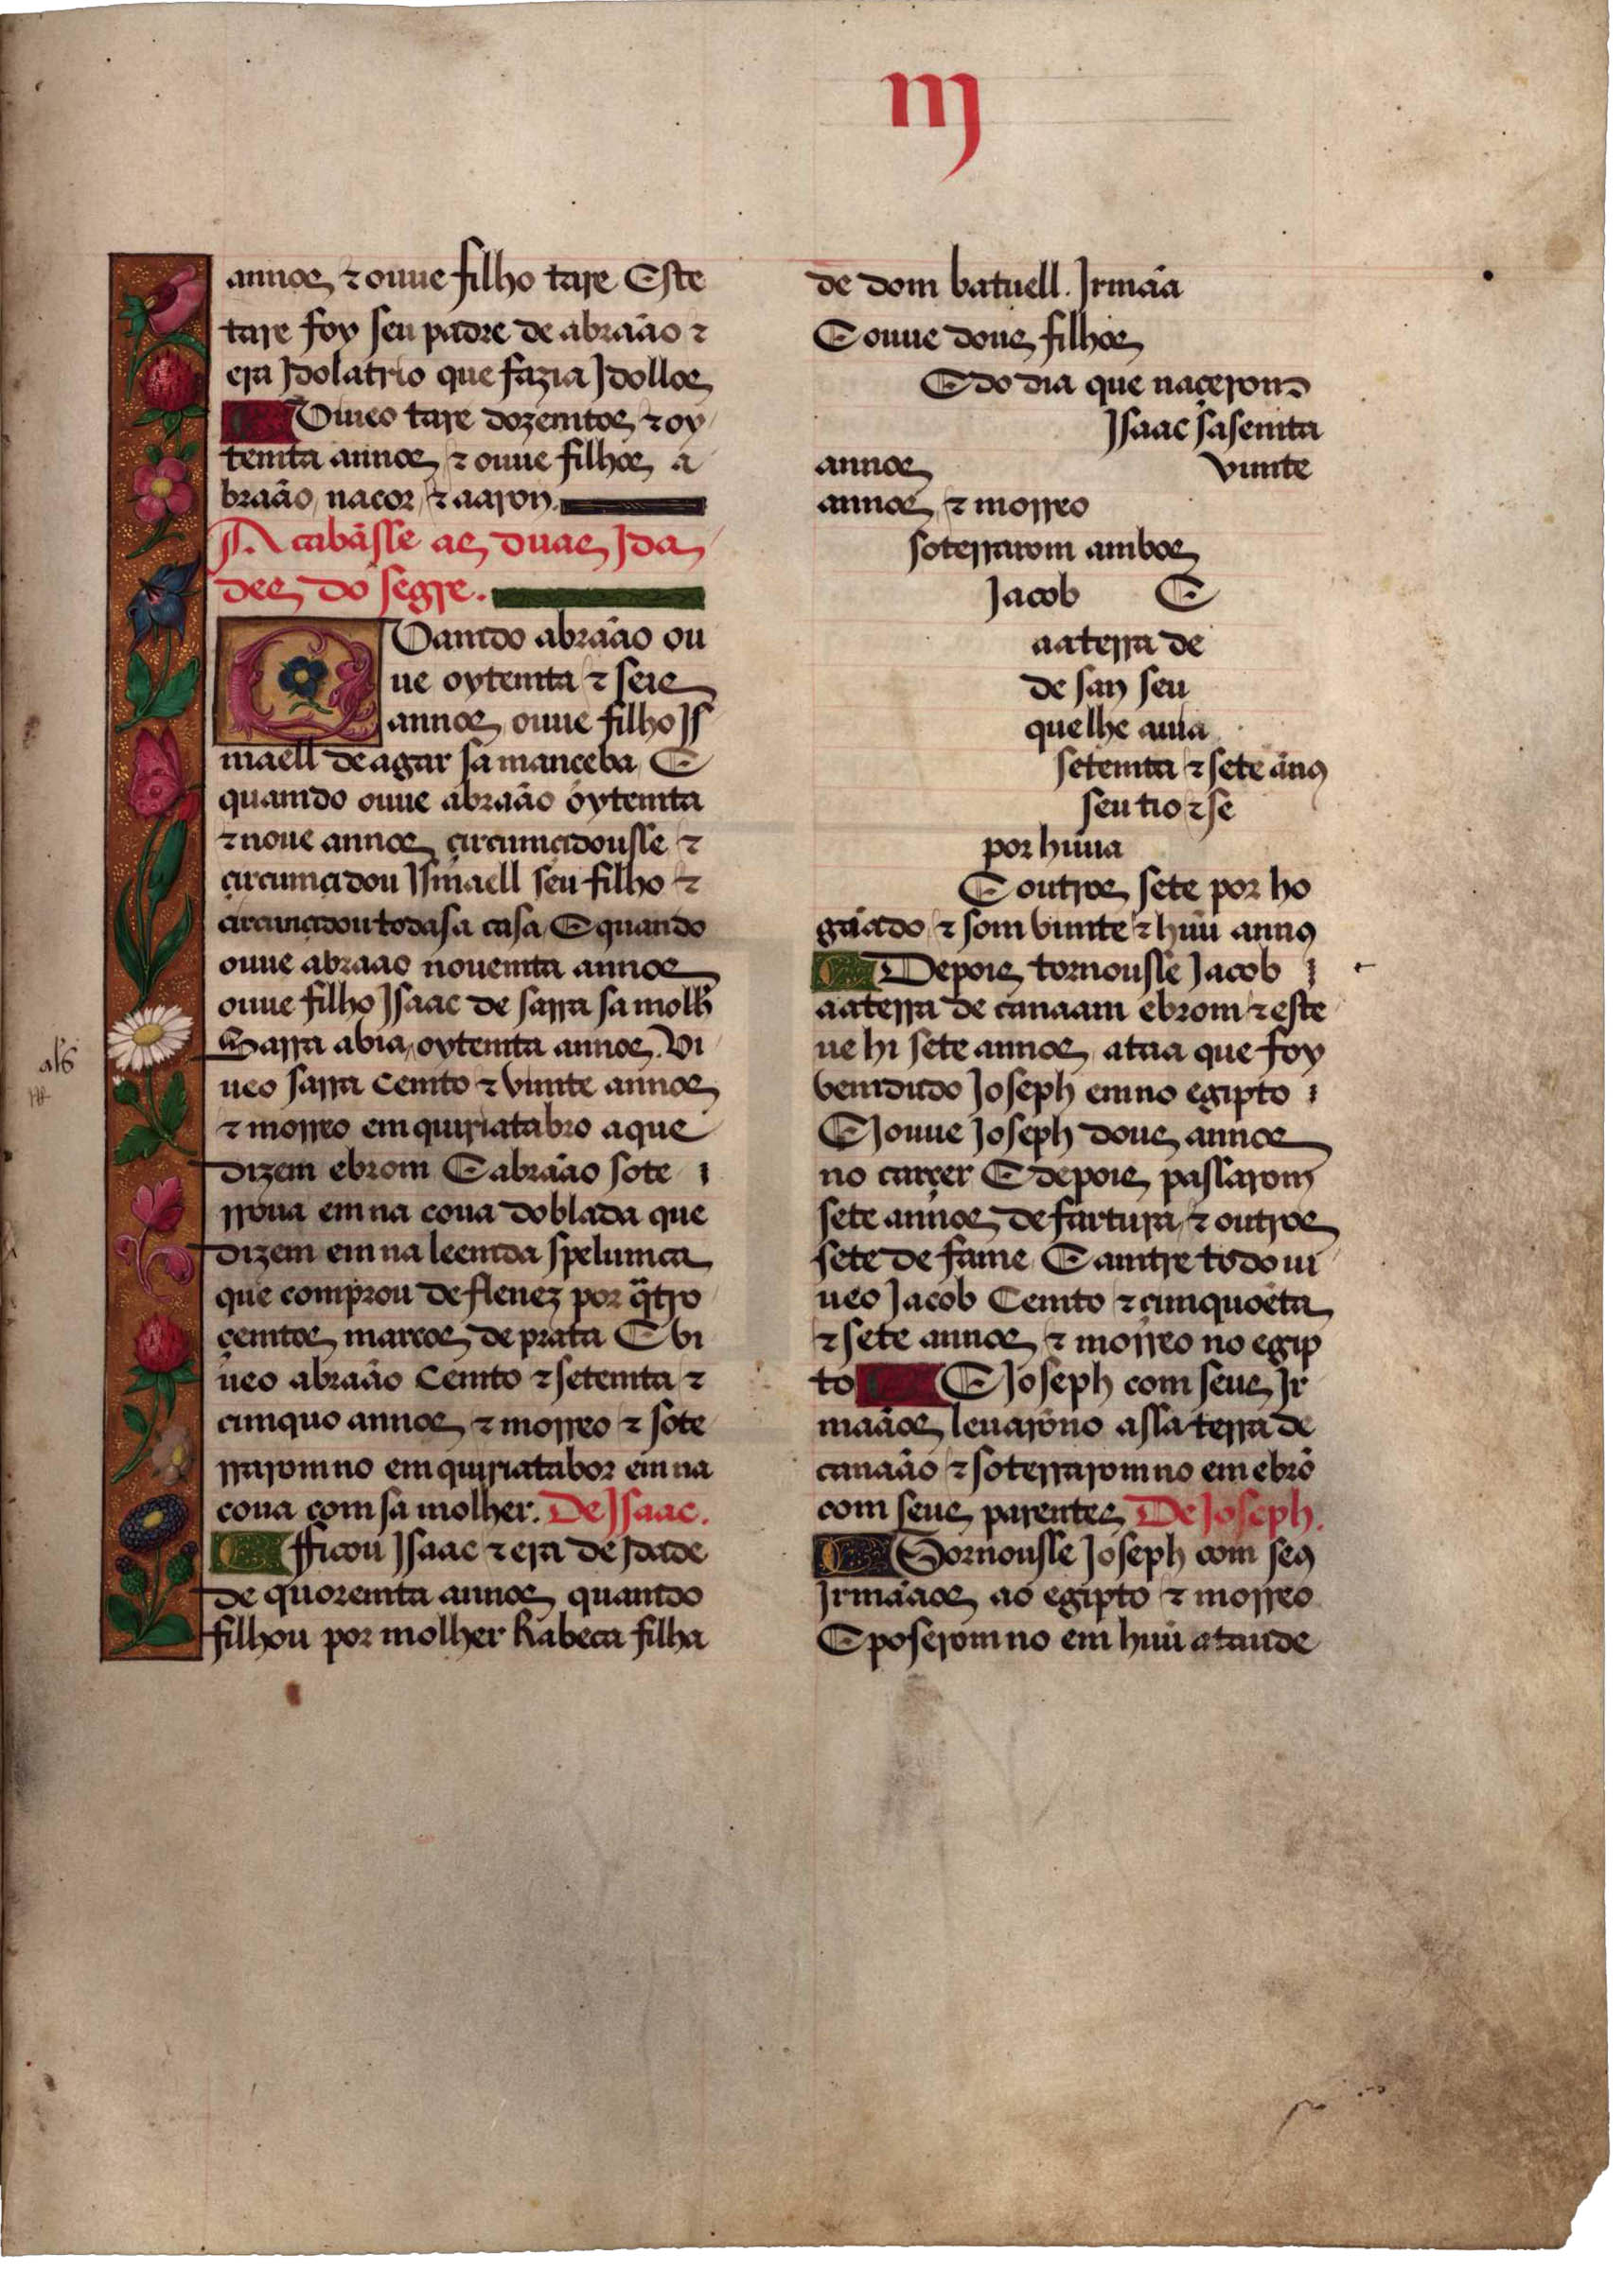 iij
annos ⁊ ouue filho tare Este
tare foy seu padre de abraão ⁊
era Jdolatrio que fazia Jdollos
Viueo tare dozemtos ⁊ oy
temta annos ⁊ ouue filhos a
braão nacor ⁊ aaron.
Acabasse as duas Jda
des do segre.
Quamdo abraão ou
ue oytemta ⁊ seis
annos ouue filho Js
maell de agar sa manceba E
quamdo ouue abraão oytemta
⁊ noue annos çircumçidousse ⁊
çircumçidou Jsmaell seu filho ⁊
circunçidou toda sa casa E quando
ouue abraao nouemta annos
ouue filho Jsaac de sarra sa molh
Sarra abia oytemta annos. Vi
ueo sarra Cemto ⁊ vimte annos
⁊ morreo em quiriatabro a que
dizem ebrom E abraão sote
rroua em na coua doblada que
dizem em na leemda spelumca
que comprou de flenez por qtro
çemtos marcos de prata E vi
ueo abraão Cemto ⁊ setemta ⁊
cimquo annos ⁊ morreo ⁊ sote
rraromno em quiriatabor em na
coua com sa molher. De Jsaac.
Fficou Jsaac ⁊ era de Jdade
de quoremta annos quamdo
filhou por molher Rabeca filha
als
de dom batuell. Jrmãa
E ouue dous filhos
E do dia que naçerom
Jsaac sasemta
annos vimte
annos ⁊ morreo
soterrarom ambos
Jacob E
aa terra de
de san seu
que lhe auia
setemta ⁊ sete ãnos
seu tio ⁊ se
por huua
E outros sete por ho
gaado ⁊ som vimte ⁊ huu annos
Depois tornousse Jacob
aa terra de canaam ebrom ⁊ este
ue hi sete annos ataa que foy
vemdudo Joseph em no egipto
E Jouue Joseph dous annos
no carçer E depois passarom
sete annos de fartura ⁊ outros
sete de fame E amtre todo ui
ueo Jacob Cemto ⁊ çimquoẽta
⁊ sete annos ⁊ morreo no egip
to E Joseph com seus Jr
maãos leuarono assa terra de
canaão ⁊ soterraromno em ebrõ
com seus parentes De Joseph.
Tornousse Joseph com seos
Jrmãaos ao egipto ⁊ morreo
E poseromno em huu ataude